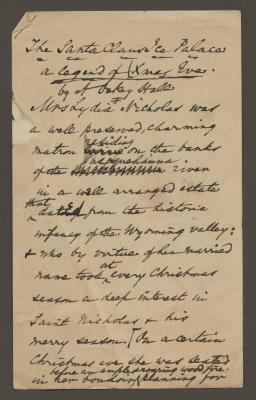 The Santa Claus Ice Palace
a legend of Xmas Eve.
by A Oakey Hall
Mrs Lydia St Nicholas was
a well preserved, charming
matron residing on the banks
of the Susquehanna river
in a well arranged estate
that dated from the historic
infancy of the Wyoming valley:
& who by virtue of her married
name took at every Christmas
season a deep interest in
Saint Nicholas & his
merry season. [On a certain
Christmas eve she was seated
before an ample roaring wood fire
in her boudoir, planning for